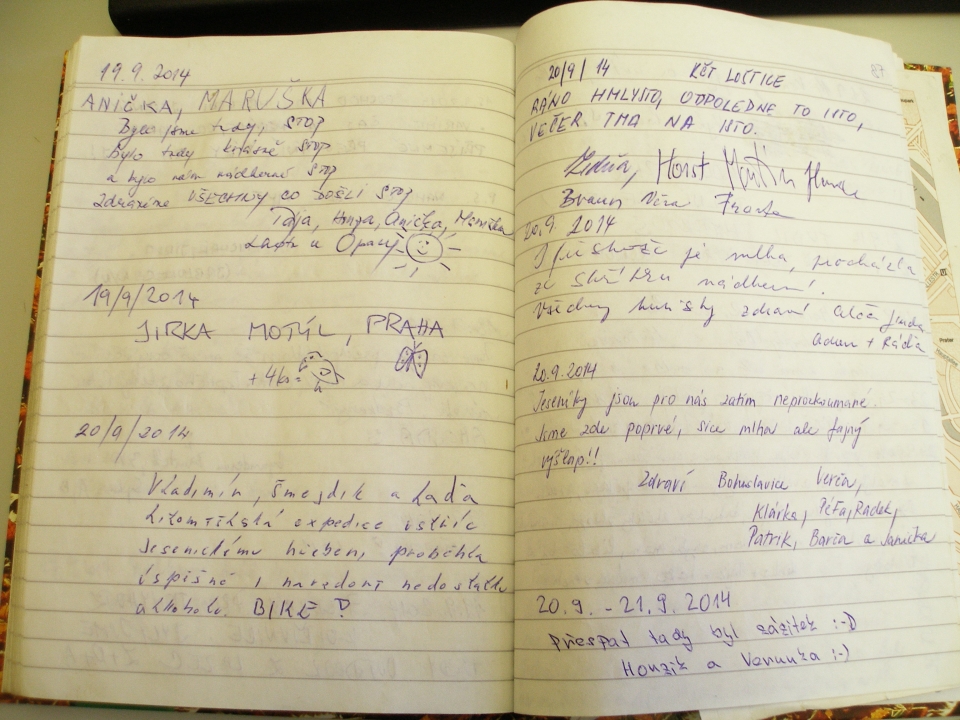 19.9.2014
ANIČKA, MARUŠKA
Byli jsme tudy, STOP
Bylo tady krásně STOP
a bylo nám nádherně STOP
Zdravíme VŠECHNY CO DOŠLI STOP
Tája, Anička, Maruška
a Opavy
19/9/2014
JIRKA MOTÝL, PRAHA
+ 4ks =
20/9/2014
Vladimír, Šmejdik a Laďa
Litoměřická expedice vstříc
Jesenickému hřebeni, proběhla
úspěšně i navzdory nedostatku
alkoholu. BIKE
20/9/14 KČT LOŠTICE
RÁNO MHLYSTO, ODPOLEDNE TO ISTO,
VEČER TMA NA ISTO.
Horst Martin
Braun Věra
20.9.2014
je mlha, procházka
nádherná.
Všechny turisty zdraví
Adam + Ráďa
20.9.2014
Jeseníky jsou pro nás zatím neprozkoumané.
Jsme zde poprvé, sice mlha ale fajný
výšlap!!
Zdraví Bohuslavice Verča,
Klárka, Péťa, Radek,
Patrik, Barča a Janička
20.9. - 21.9. 2014
Přespat tady byl zážitek :-D
Honzík a Verunka :-)